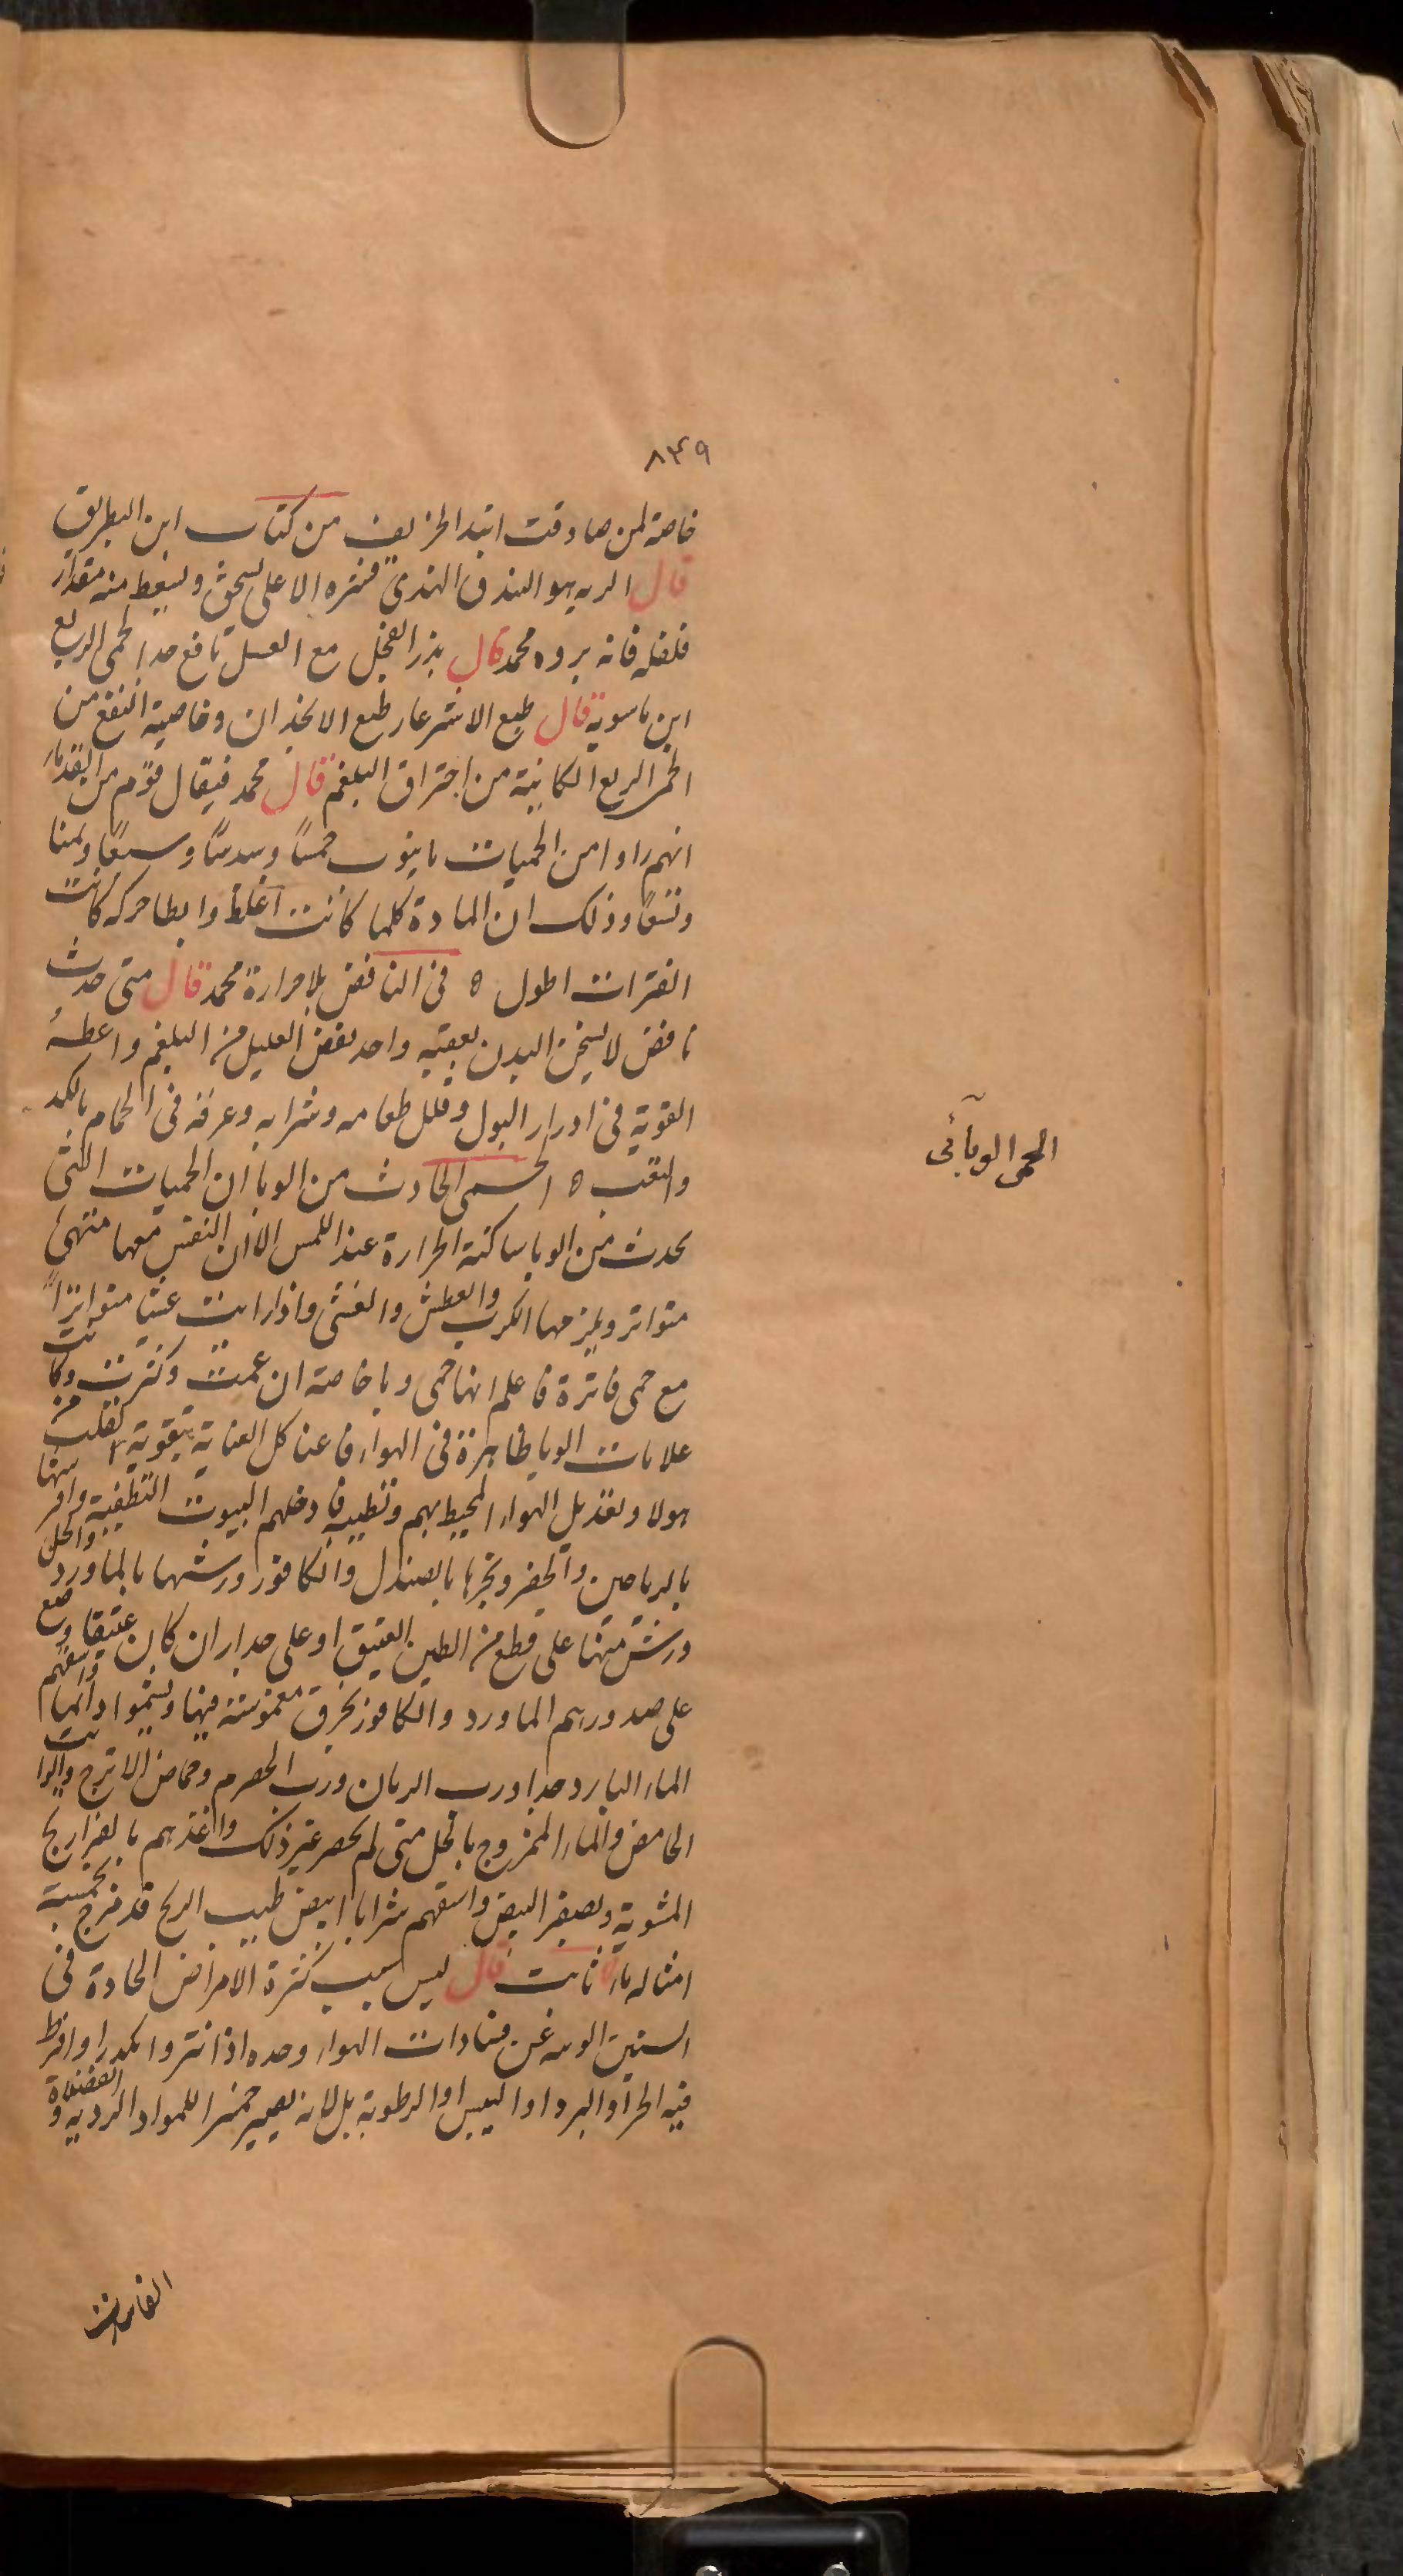 ٨٣٩
خاصة لمن صادفت ابتداء الخريف من كتاب ابن البطريق
قال الرته هو البندق الهندى قشره الاعلى يسحق ويسعط منه مقدار
فلفله فانه بروه محمد قال بزر الفجل مع العسل نافع جدا لحمى الربع
ابن ماسويه قال طبع الاشترغار طبع الانجذان وخاصية النفع من
الحمى الربع الكائنة من احتراق البلغم قال محمد فيقال قوم من القدماء
انهم راوا من الحميات ما ينوب خمسًا وسدسًا وسبعًا وثمنا
وتسعًا وذلك ان المادة كلما كانت اغلظ وابطا حركه كانت
الفترات اطول ٥ فى النافض بلا حرارة محمد قال متى حدث
نافض لا يسخن البدن بعقبه واحد نفض العليل من البلغم واعطه
القوية فى ادرار البول وقلل طعامه وشرابه وعرقه فى الحمام بالكد
والتعب ٥ الحمى الحادث من الوبا ان الحميات التى
يحدث من الوبا ساكنة الحرارة عند اللمس الا ان النفس معها منتهى
متواتر ويلزمها الكرب والعطش والغشى واذا رايت غشيا متواترًا
مع حمى فاترة فاعلم انها حمى وبا خاصة ان عمت وكثرت وكانت
علامات الوبا ظاهرة فى الهواء فاعن كل العناية بتقوية القلب من
هولا وتعديل الهواء المحيط بهم وتطييبه فادخلهم البيوت النظيفة وافرشها
بالرياحين والخضر وبخرها بالصندل والكافور ورشها بالماورد والخل
ورش منها على قطع من الطين العتيق او على جدار ان كان عتيقا وضع
على صدورهم الماورد والكافور بخرق مغموسة فيها ويشموا دائما واسقهم
الماء البارد جدا ورب الرمان ورب الحصرم وحماض الاترج والرائب
الحامض والماء الممزوج بالخل متى لم يحضر غير ذلك واغذهم بالفراريج
المشوية وبصفر البيض واسقهم شرابا ابيض طيب الريح قد مزج بخمسة
امثاله ماء ثابت قال ليس سبب كثرة الامراض الحادة فى
السنين عن فسادات الهواء وحده اذا نتن واكدر او افرط
فيه الحر او البرد او اليبس او الرطوبة بل لانه يصير خميرا للمواد الردية والفضلة
الحمى الوبائى